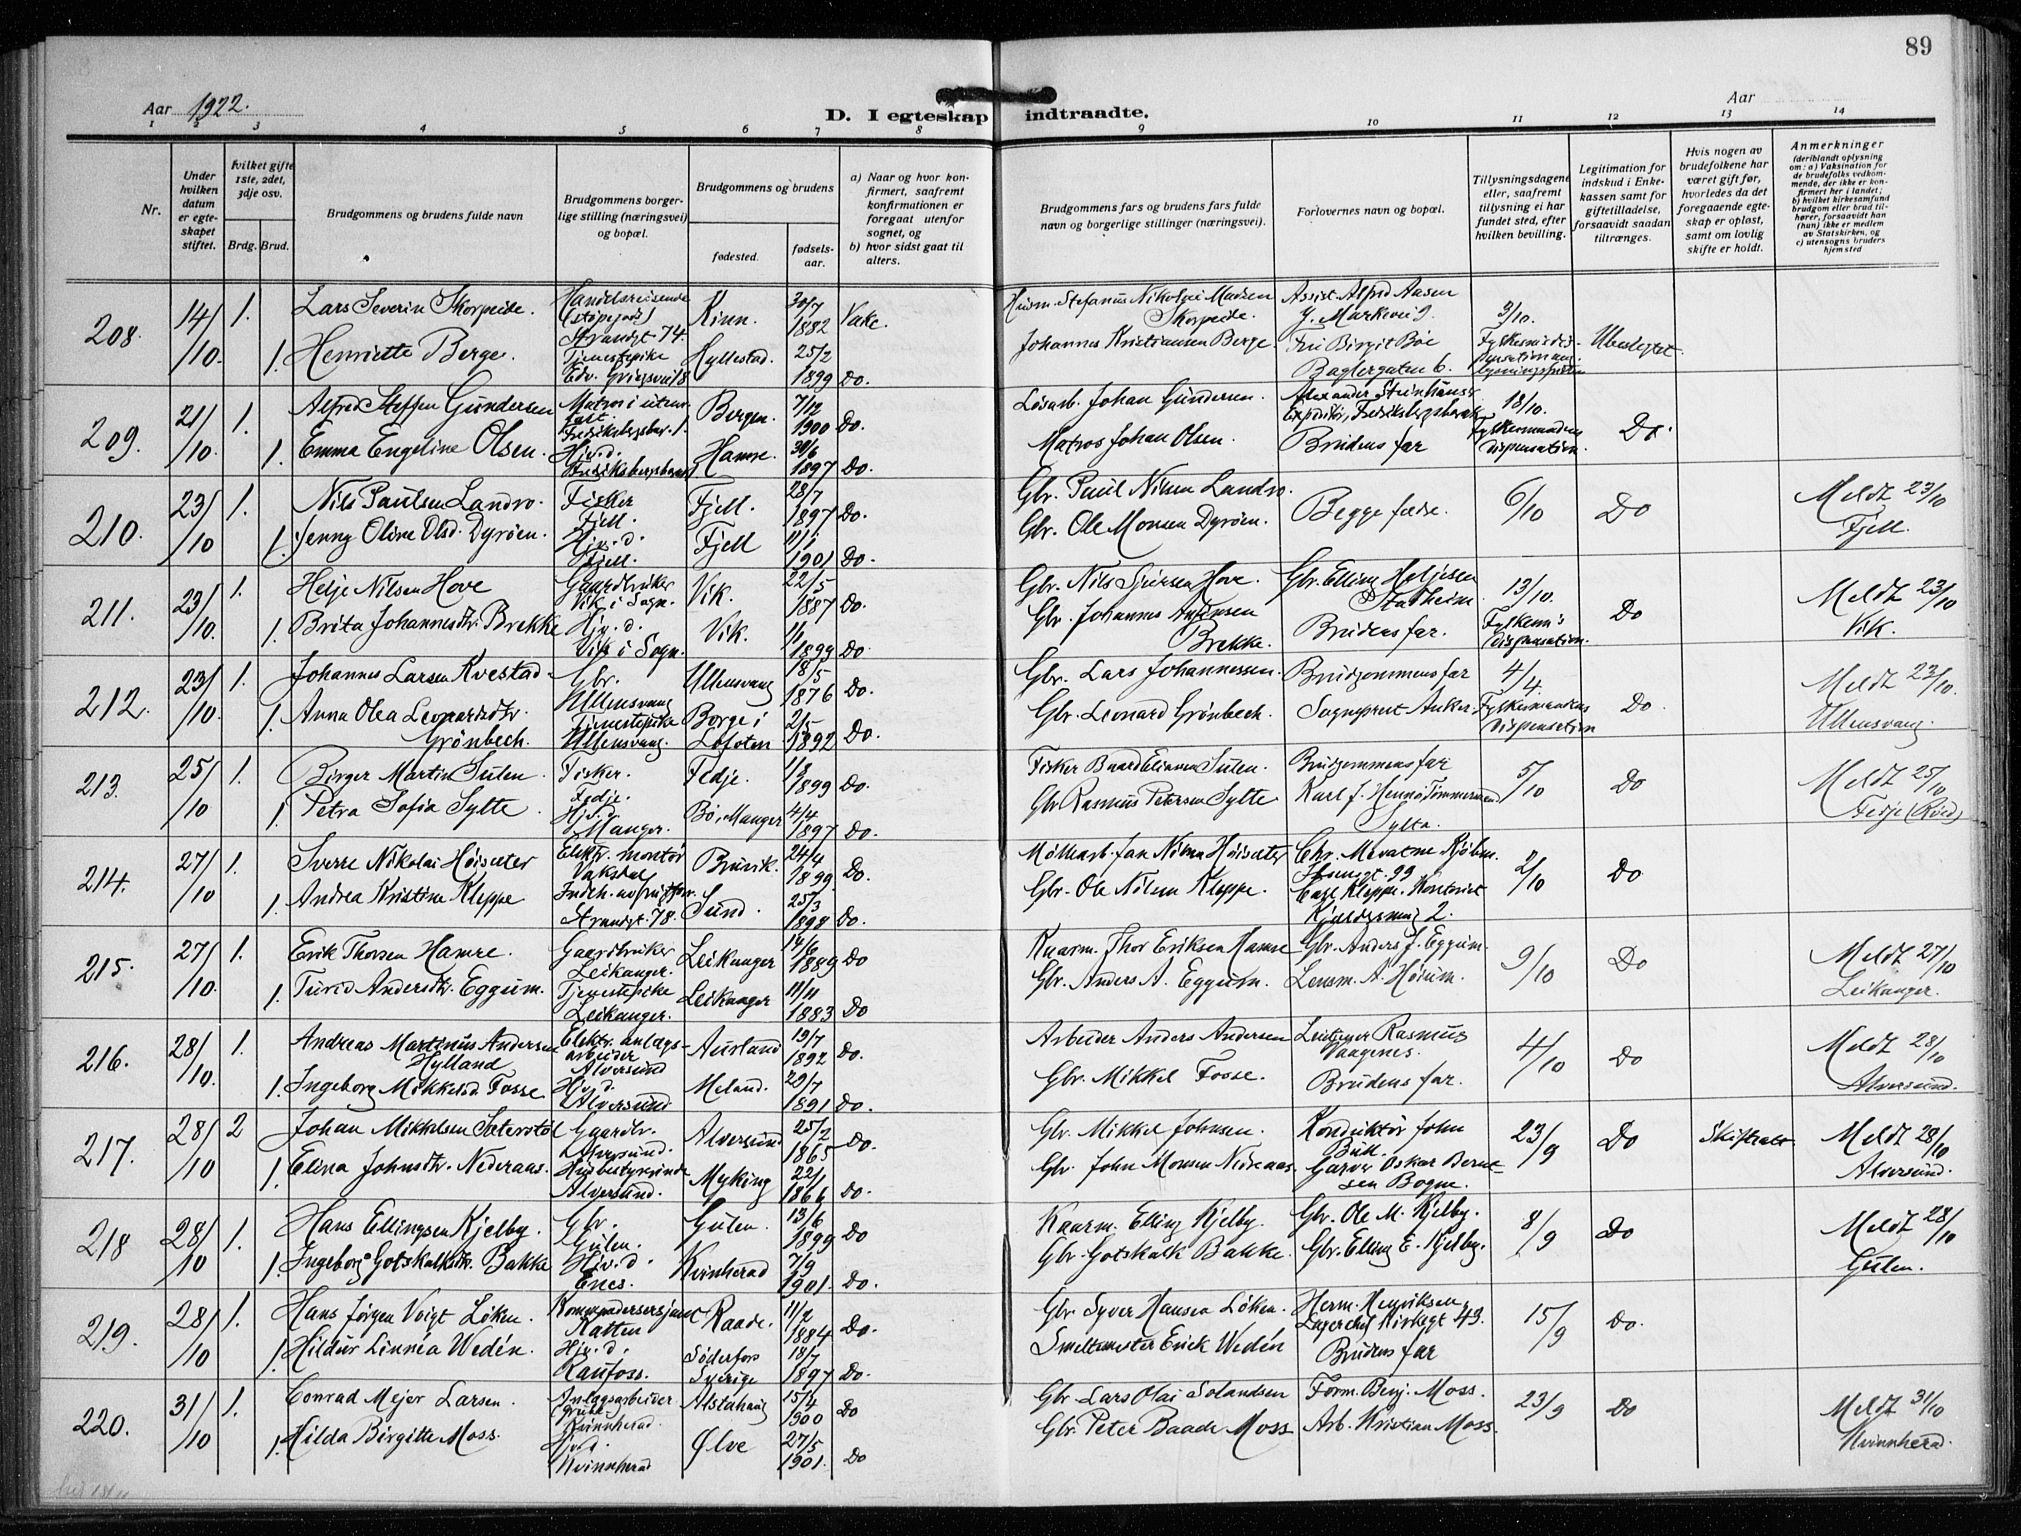 89
Aar 1922.
D. I egteskap indtraadte.
Aar
1 2 3 4 5 6 7 8 9 10 11 12 13 14
Nr.
Under hvilken datum er egteskapet stiftet.
Hvilket gifte 1ste, 2det, 3dje osv.
Brdg. Brud.
Brudgommens og brudens fulde navn
Brudgommens borgerlige stilling (næringsvei) og bopæl.
Brudgommens og brudens
fødested.
fødselsaar.
a) Naar og hvor konfirmert, saafremt konfirmationen er foregaat utenfor sognet, og
b) hvor sidst gaat til alters.
Brudgommens fars og brudens fars fulde navn og borgerlige stillinger (næringsvei).
Forlovernes navn og bopæl.
Tillysningsdagene eller, saafremt tillysning ei har fundet sted, efter hvilken bevilling.
Legitimation for indskud i Enkekassen samt for giftetilladelse, forsaavidt saadan tiltrænges.
Hvis nogen av brudefolkene har været gift før, hvorledes da det foregaaende egteskap er opløst, samt om lovlig skifte er holdt.
Anmerkninger
(deriblandt oplysning om: a) Vaksination for de brudefolks vedkommende, der ikke er konfirmert her i landet; b) hvilket kirkesamfund brudgom eller brud tilhører, forsaavidt han (hun) ikke er medlem av Statskirken, og c) utensogns bruders hjemsted
208. 14/10. 1. Lars Severin Skorpeide. Handelsreisende Strandgt 74. Kinn. 30/7 1882 Vake. Husm. Stefanus Nikolai Madsen Skorpeide. Assist. Alfred Aasen 3/10. Ubeslegtet.
1. Henriette Berge. Tjenestepike Edv. Griegsvei 8 Hyllestad. 25/2 1899 Do. Johannes Kristiansen Berge. Frk Birgit Böe Baglergaten 6.
209. 21/10. 1. Alfred Steffen Gundersen Matros i utenr. fart. Fredriksbergsbak. 1. Bergen. 7/12 1900 Do. Løsarb. Johan Gundersen. Alexander Steinhauser Expeditör, Fredriksbergsbakk. 18/10. Fylkesmandens dispensation. Do.
1. Emma Engeline Olsen. Hjv. d. Hamre. 30/6 1897 Do. Matros Johan Olsen. Brudens far
210. 23/10 1. Nils Paulsen Landro. Fisker Fjell. Fjell. 28/7 1897 Do. Gbr. Paul Nilsen Landro. Begge fædre. 6/10 Do Meldt 23/10 Fjell.
1. Jenny Oline Olsd. Dyröen. Hjv. d. Fjell. Fjell 11/1 1901 Do. Gbr. Ole Monsen Dyröen.
211. 23/10. 1. Helje Nilsen Hove Gaardbruker Vik i Sogn. Vik. 22/5 1887 Do. Gbr. Nils Sjursen Hove. Gbr. Elling Heljesen Stadheim 13/10. Fylkesm.s dispensation. Do Meldt 23/10 Vik.
1. Brita Johannesdtr. Brekke Hjv. d. Vik i Sogn. Vik. 1899 Do. Gbr. Johannes Brekke. Brudens far.
212. 23/10. 1. Johannes Larsen Kvestad Gbr. Ullensvang Ullensvang 18/5 1876 Do. Gbr. Lars Johannessen. Brudgommens far 4/4. Fylkesmandens dispensation Do. Meldt 23/10. Ullensvang.
1. Anna Olea Leonardsdtr. Grönbech. Tjenestepike Ullensvang. Borge i Lofoten 2/5 1892 Do. Gbr. Leonard Grönbech. Sogneprest Anker.
213. 25/10 1. Birger Martin Sulen. Fisker. Fedje. Fedje. 1899 Do. Fisker Baard Eliassen Sulen. Brudgommens far 5/10 Do Meldt 25/10 Fedje
1. Petra Sofia Sylte Hjv. d. Manger. Bö i Manger 4/4 1897 Do. Gbr. Rasmus Petersen Sylte Karl J. Hennö, Tömmermand Sylta.
214. 27/10 1. Sverre Nikolai Höisæter Elektr. montör Vaksdal Bruvik. 24/4 1899. Do. Möllearb. Jan Nilsen Höisæter Chr. 2/10 Do
1. Andrea Kristine Kleppe Strandgt. 78. Sund. 25/3 1898 Do. Gbr. Ole Nilsen Kleppe. Carl Kleppe. Kontorist 2.
215. 27/10. 1. Erik Thorsen Hamre. Gaardbruker Leikanger. Leikanger 14/6 1889 Do Kaarm. Thor Eriksen Hamre Gbr. Anders J. Eggum. 9/10 Do Meldt 27/10 Leikanger.
1. Turid Andersdtr. Eggum. Tjenestepike Leikanger. Leikanger 11/11 1883 Do Gbr. Anders A. Eggum. Lensm. A. Höium.
216. 28/10. 1. Andreas Martinus Andersen Hylland Elektr. anlægsarbeider Alversund Aurland 19/7 1892 Do. Arbeider Anders Andersen Rasmus Vaagenes. 4/10 Do Meldt 28/10 Alversund.
1. Ingeborg Mikkelsd. Fosse Hjv. d. Alversund Meland. 20/7 1891 Do. Gbr. Mikkel Fosse. Brudens far.
217. 28/10 2 Johan Mikkelsen Sæterstöl Gaardbr. Alversund. Alversund 25/2 1865 Do. Gbr. Mikkel Johnsen. Konduktör John 23/9 Do Skifteatt. Meldt 28/10 Alversund.
1. Elina Johnsdtr. Nederaas. Husbestyrerinde Alversund. Myking 22/1 1866 Do. Gbr. John Monsen Nederaas Garver Oskar Berntsen Bogne.
218 28/10 1. Hans Ellingsen Kjelby. Gbr. Gulen. Gulen. 13/6 1899 Do Kaarm. Elling Kjelby. Gbr. Ole M. Kjelby. 8/9 Do Meldt 28/10 Gulen.
1. Ingeborg Gotskalksdtr. Bakke Hjv. d. Enes. Kvinherad 7/9 1901. Do. Gbr. Gotskalk Bakke. Gbr. Elling E. Kjelby.
219. 28/10 1. Hans Jörgen Voigt Löken. Kommandersersjant Ratten Raade. 11/2 1884 Do. Gbr. Syver Hansen Löken. Herm. Henriksen, Lagerchef Kirkegt 49. 15/9 Do.
1. Hildur Linnéa Wedén. Hjv. d. Raufoss. Söderfors Sverige 18/7 1897 Do. Smeltemester Erick Wedén Brudens far
220. 31/10 1. Conrad Mejer Larsen. Anlægsarbeider Kvinnherad. Alstahaug 15/4 1900 Do Gbr. Lars Olai Solandsen Form. Benj. Moss. 23/9 Do Meldt 31/10 Kvinnherad.
1. Hilda Birgitte Moss. Hjv. d. Kvinnherad Ølve 27/5 1901. Do Gbr. Peter Baade Moss Arb. Kristian Moss.